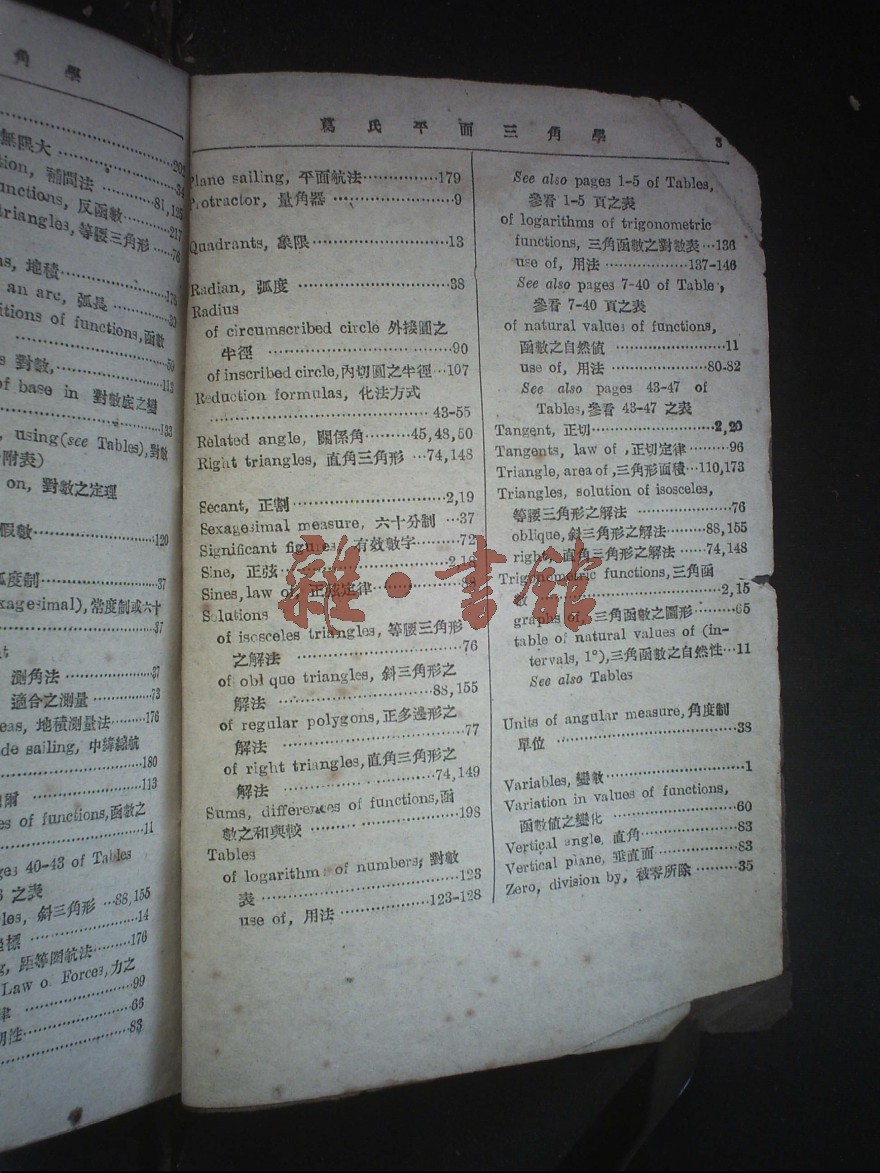 角 學
無限大 ............202
tion, 補間法 ............34
unctions, 反函數............81,125
triangles, 等腰三角形 ......76
ns, 地積............178
an arc, 弧長 ............39
itions of functions, 函數
............59
s 對數,............113
of base in 對數底之變
............133
, using (see Tables), 對數
附表)
on, 對數之定理
假數............120
弧度制............37
xagesimal), 常度制或六十
............37
測角法 ............37
適合之測量 ............73
eas, 地積測量法......176
de sailing, 中緯線航
............180
爾 ............113
es of functions, 函數之
............11
ges 40-43 of Tables
之表
les, 斜三角形 ...88,155
坐標 ............14
g, 距等圈航法......176
Law of Forces, 力之
律 ............99
............66
............83
葛 氏 平 面 三 角 學 3
Plane sailing, 平面航法............179
Protractor, 量角器 ............9
Quadrants, 象限............13
Radian, 弧度 ............38
Radius
of circumscribed circle 外接圓之
半徑 ............90
of inscribed circle, 內切圓之半徑...107
Reduction formulas, 化法方式
............43-55
Related angle, 關係角.........45,48,50
Right triangles, 直角三角形 ...74,148
Secant, 正割............2,19
Sexagesimal measure, 六十分制 ...37
Significant figures, 有效數字.........72
Sine, 正弦............2,19
Sines, law of, 正弦定律............88
Solutions
of isosceles triangles, 等腰三角形
之解法 ............76
of oblique triangles, 斜三角形之
解法 ............88,155
of regular polygons, 正多邊形之
解法 ............77
of right triangles, 直角三角形之
解法 ............74,149
Sums, differences of functions, 函
數之和與較 ............198
Tables
of logarithms of numbers, 對數
表 ............123
use of, 用法 ............123-128
See also pages 1-5 of Tables,
參看 1-5 頁之表
of logarithms of trigonometric
functions, 三角函數之對數表...136
use of, 用法 ............137-146
See also pages 7-40 of Table,
參看 7-40 頁之表
of natural values of functions,
函數之自然値 ............11
use of, 用法 ............80-82
See also pages 43-47 of
Tables, 參看 43-47 之表
Tangent, 正切............2,20
Tangents, law of, 正切定律.........96
Triangle, area of, 三角形面積...110,173
Triangles, solution of isosceles,
等腰三角形之解法 ............76
oblique, 斜三角形之解法.........88,155
right, 直角三角形之解法 ......74,148
Trigonometric functions, 三角函
數 ............2,15
graphs of, 三角函數之圖形......65
table of natural values of (in-
tervals, 1°), 三角函數之自然性...11
See also Tables
Units of angular measure, 角度制
單位 ............38
Variables, 變數............1
Variation in values of functions,
函數值之變化 ............60
Vertical angle, 直角............83
Vertical plane, 垂直面............83
Zero, division by, 被零所除.........35
雜·書館